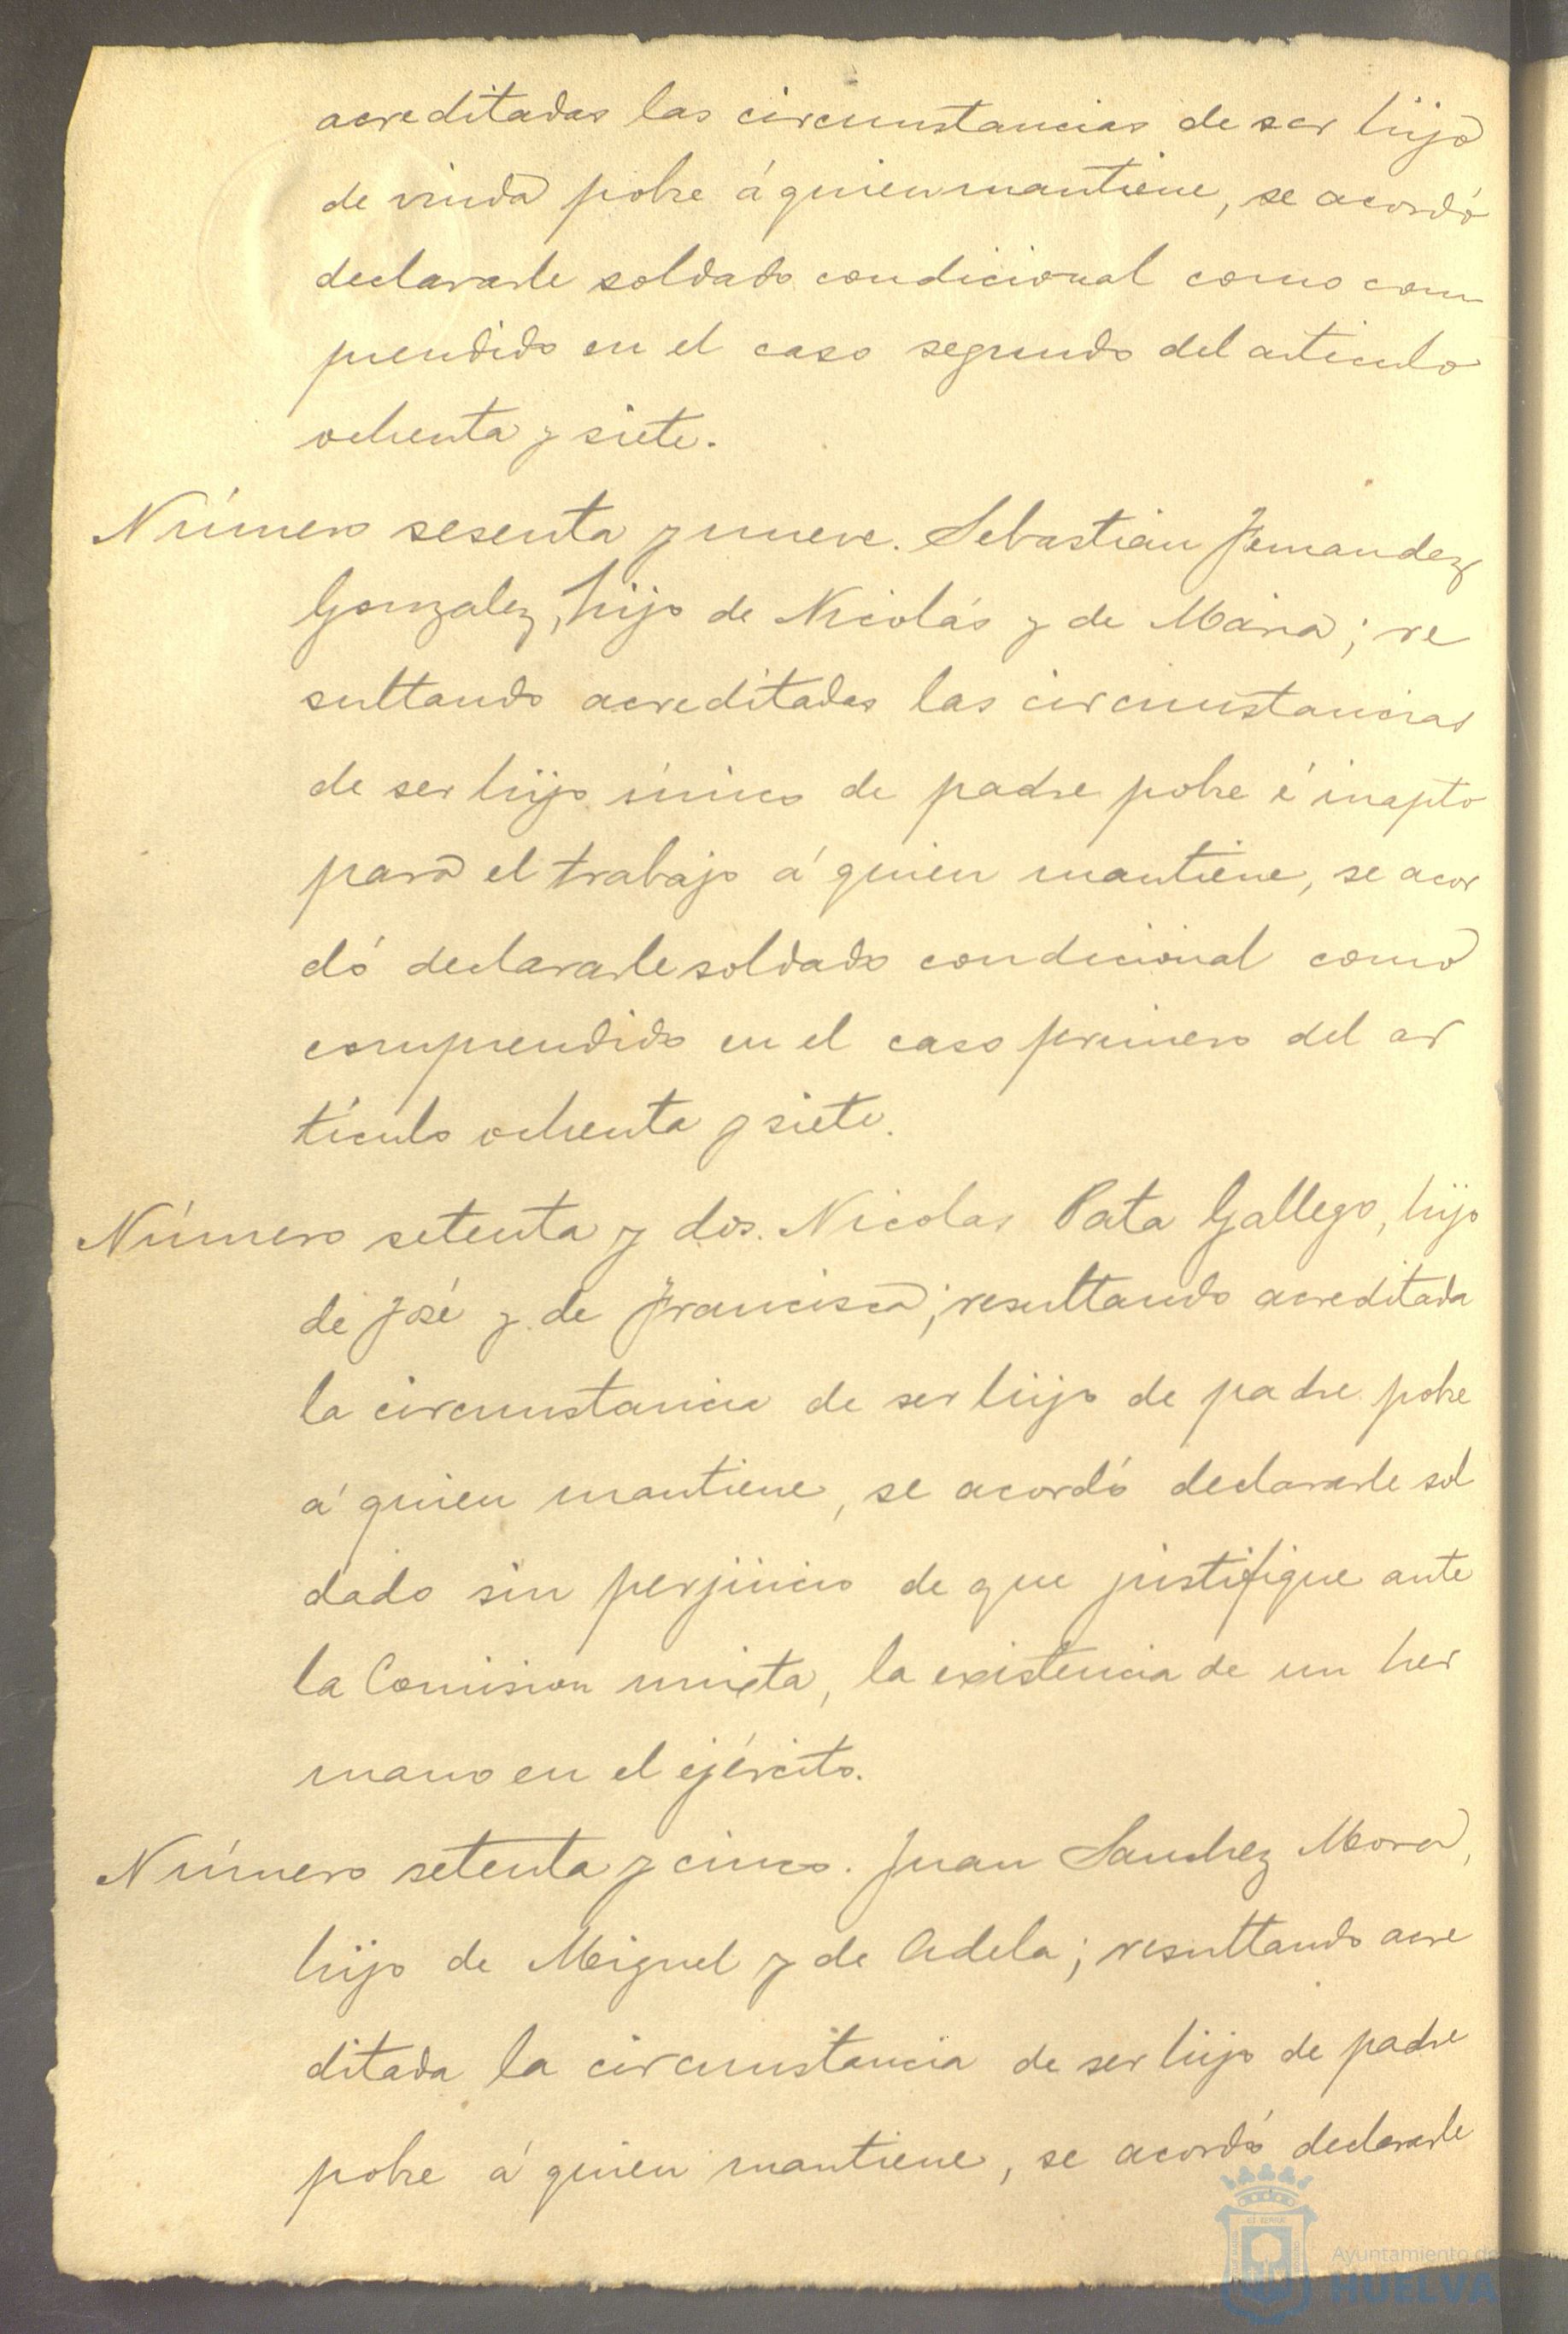 acreditadas las circunstancias de ser hijo
de viuda pobre á quien mantiene, se acordó
declararle soldado condicional como com
prendido en el caso segundo del articulo
ochenta y siete.
Número sesenta y nueve. Sebastián Fernandez
Gonzalez, hijo de Nicolás y de Maria; re
sultando acreditadas las circunstancias
de ser hijo único de padre pobre é inapto
para el trabajo á quien mantiene, se acor
dó declararle soldado condicional como
comprendido en el caso primero del ar
tículo ochenta y siete.
Número setenta y dos. Nicolas Pata Gallego, hijo
de José y de Francisca; resultando acreditada
la circunstancia de ser hijo de padre pobre
á quien mantiene, se acordó declararle sol
dado sin perjuicio de que justifique ante
la Comision mixta, la existencia de un her
mano en el ejército.
Número setenta y cinco. Juan Sanchez Mora,
hijo de Miguel y de Adela; resultando acre
ditada la circunstancia de ser hijo de padre
pobre á quien mantiene, se acordó declararle
Ayuntamiento de
HUELVA